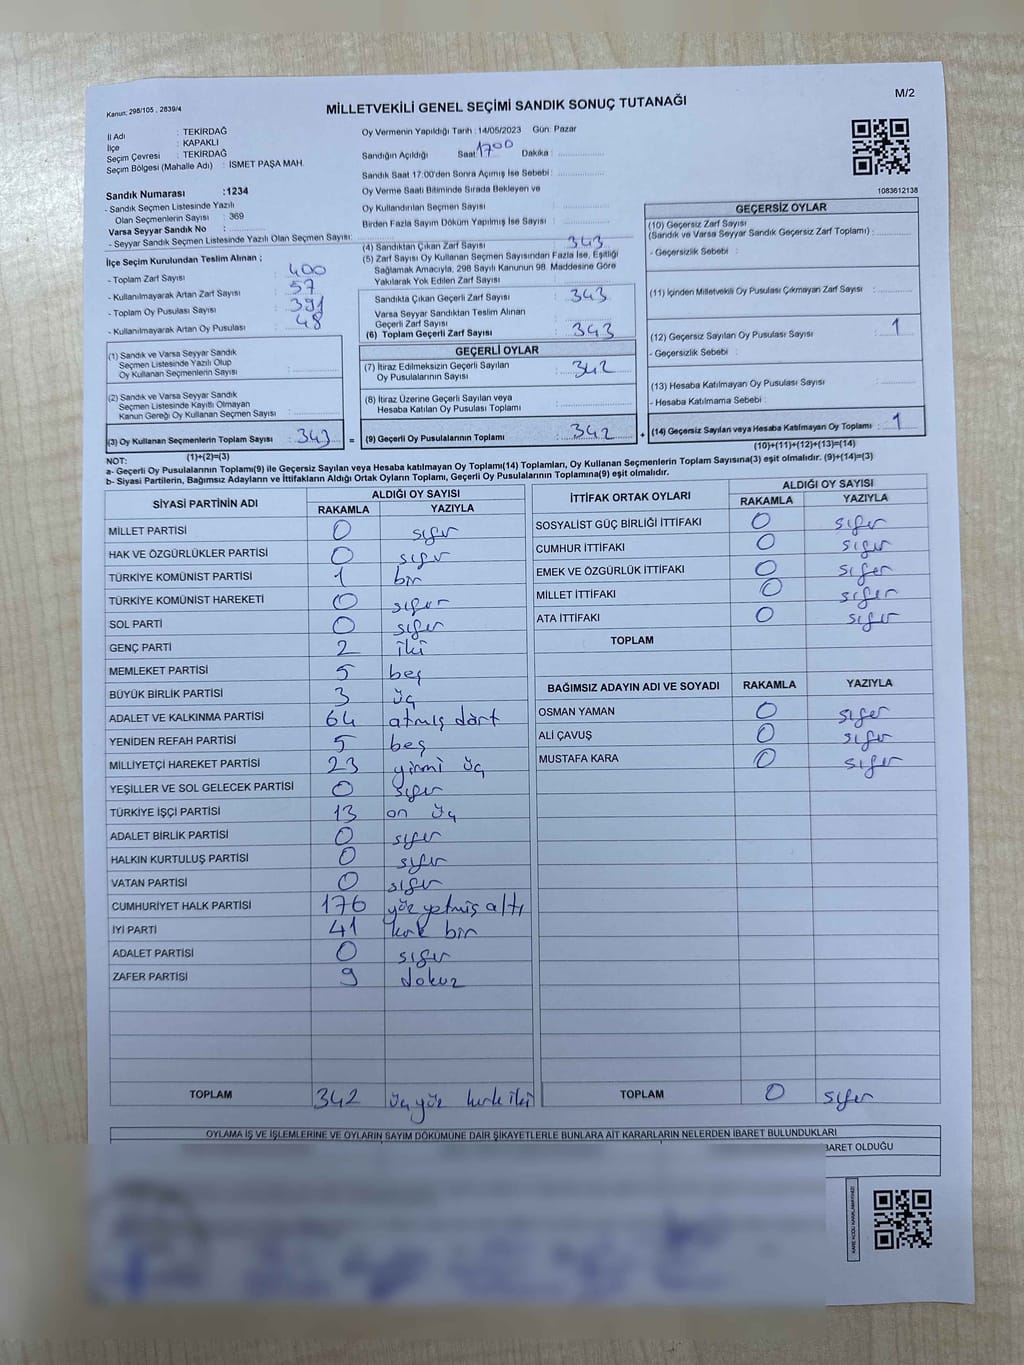 Kanun: 298/105 , 2839/4
MİLLETVEKİLİ GENEL SEÇİMİ SANDIK SONUÇ TUTANAĞI
M/2
İl Adı : TEKİRDAĞ
İlçe : KAPAKLI
Seçim Çevresi : TEKİRDAĞ
Seçim Bölgesi (Mahalle Adı) : İSMET PAŞA MAH.
Sandık Numarası :1234
- Sandık Seçmen Listesinde Yazılı
Olan Seçmenlerin Sayısı : 369
Varsa Seyyar Sandık No :
- Seyyar Sandık Seçmen Listesinde Yazılı Olan Seçmen Sayısı:
Oy Vermenin Yapıldığı Tarih : 14/05/2023 Gün: Pazar
Sandığın Açıldığı Saat: 1700 Dakika :
Sandık Saat 17:00'den Sonra Açımış İse Sebebi :
Oy Verme Saati Bitiminde Sırada Bekleyen ve
Oy Kullandırılan Seçmen Sayısı :
Birden Fazla Sayım Döküm Yapılmış İse Sayısı :
1083612138
İlçe Seçim Kurulundan Teslim Alınan ;
- Toplam Zarf Sayısı : 400
- Kullanılmayarak Artan Zarf Sayısı : 57
- Toplam Oy Pusulası Sayısı : 391
- Kullanılmayarak Artan Oy Pusulası : 48
(1) Sandık ve Varsa Seyyar Sandık
Seçmen Listesinde Yazılı Olup
Oy Kullanan Seçmenlerin Sayısı :
(2) Sandık ve Varsa Seyyar Sandık
Seçmen Listesinde Kayıtlı Olmayan
Kanun Gereği Oy Kullanan Seçmen Sayısı :
(3) Oy Kullanan Seçmenlerin Toplam Sayısı : 343 =
(1)+(2)=(3)
(4) Sandıktan Çıkan Zarf Sayısı : 343
(5) Zarf Sayısı Oy Kullanan Seçmen Sayısından Fazla İse, Eşitliği
Sağlamak Amacıyla, 298 Sayılı Kanunun 98. Maddesine Göre
Yakılarak Yok Edilen Zarf Sayısı :
Sandıkta Çıkan Geçerli Zarf Sayısı : 343
Varsa Seyyar Sandıktan Teslim Alınan
Geçerli Zarf Sayısı :
(6) Toplam Geçerli Zarf Sayısı : 343
GEÇERLİ OYLAR
(7) İtiraz Edilmeksizin Geçerli Sayılan
Oy Pusulalarının Sayısı : 342
(8) İtiraz Üzerine Geçerli Sayılan veya
Hesaba Katılan Oy Pusulası Toplamı :
(9) Geçerli Oy Pusulalarının Toplamı : 342 +
GEÇERSİZ OYLAR
(10) Geçersiz Zarf Sayısı
(Sandık ve Varsa Seyyar Sandık Geçersiz Zarf Toplamı) :
- Geçersizlik Sebebi :
(11) İçinden Milletvekili Oy Pusulası Çıkmayan Zarf Sayısı :
(12) Geçersiz Sayılan Oy Pusulası Sayısı : 1
- Geçersizlik Sebebi :
(13) Hesaba Katılmayan Oy Pusulası Sayısı :
- Hesaba Katılmama Sebebi :
(14) Geçersiz Sayılan veya Hesaba Katılmayan Oy Toplamı : 1
(10)+(11)+(12)+(13)=(14)
NOT:
a- Geçerli Oy Pusulalarının Toplamı(9) ile Geçersiz Sayılan veya Hesaba katılmayan Oy Toplamı(14) Toplamları, Oy Kullanan Seçmenlerin Toplam Sayısına(3) eşit olmalıdır. (9)+(14)=(3)
b- Siyasi Partilerin, Bağımsız Adayların ve İttifakların Aldığı Ortak Oyların Toplamı, Geçerli Oy Pusulalarının Toplamına(9) eşit olmalıdır.
SİYASİ PARTİNİN ADI ALDIĞI OY SAYISI
RAKAMLA YAZIYLA
MİLLET PARTİSİ 0 sıfır
HAK VE ÖZGÜRLÜKLER PARTİSİ 0 sıfır
TÜRKİYE KOMÜNİST PARTİSİ 1 bir
TÜRKİYE KOMÜNİST HAREKETİ 0 sıfır
SOL PARTİ 0 sıfır
GENÇ PARTİ 2 iki
MEMLEKET PARTİSİ 5 beş
BÜYÜK BİRLİK PARTİSİ 3 üç
ADALET VE KALKINMA PARTİSİ 64 atmış dört
YENİDEN REFAH PARTİSİ 5 beş
MİLLİYETÇİ HAREKET PARTİSİ 23 yirmi üç
YEŞİLLER VE SOL GELECEK PARTİSİ 0 sıfır
TÜRKİYE İŞÇİ PARTİSİ 13 on üç
ADALET BİRLİK PARTİSİ 0 sıfır
HALKIN KURTULUŞ PARTİSİ 0 sıfır
VATAN PARTİSİ 0 sıfır
CUMHURİYET HALK PARTİSİ 176 yüz yetmiş altı
İYİ PARTİ 41 kırk bir
ADALET PARTİSİ 0 sıfır
ZAFER PARTİSİ 9 dokuz
TOPLAM 342 üç yüz kırk iki
İTTİFAK ORTAK OYLARI ALDIĞI OY SAYISI
RAKAMLA YAZIYLA
SOSYALİST GÜÇ BİRLİĞİ İTTİFAKI 0 sıfır
CUMHUR İTTİFAKI 0 sıfır
EMEK VE ÖZGÜRLÜK İTTİFAKI 0 sıfır
MİLLET İTTİFAKI 0 sıfır
ATA İTTİFAKI 0 sıfır
TOPLAM
BAĞIMSIZ ADAYIN ADI VE SOYADI RAKAMLA YAZIYLA
OSMAN YAMAN 0 sıfır
ALİ ÇAVUŞ 0 sıfır
MUSTAFA KARA 0 sıfır
TOPLAM 0 sıfır
OYLAMA İŞ VE İŞLEMLERİNE VE OYLARIN SAYIM DÖKÜMÜNE DAİR ŞİKAYETLERLE BUNLARA AİT KARARLARIN NELERDEN İBARET BULUNDUKLARI
BARET OLDUĞU